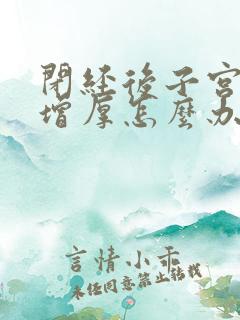 閉經後子宮
增厚怎麼办
言情小乖
未经同意禁止转载